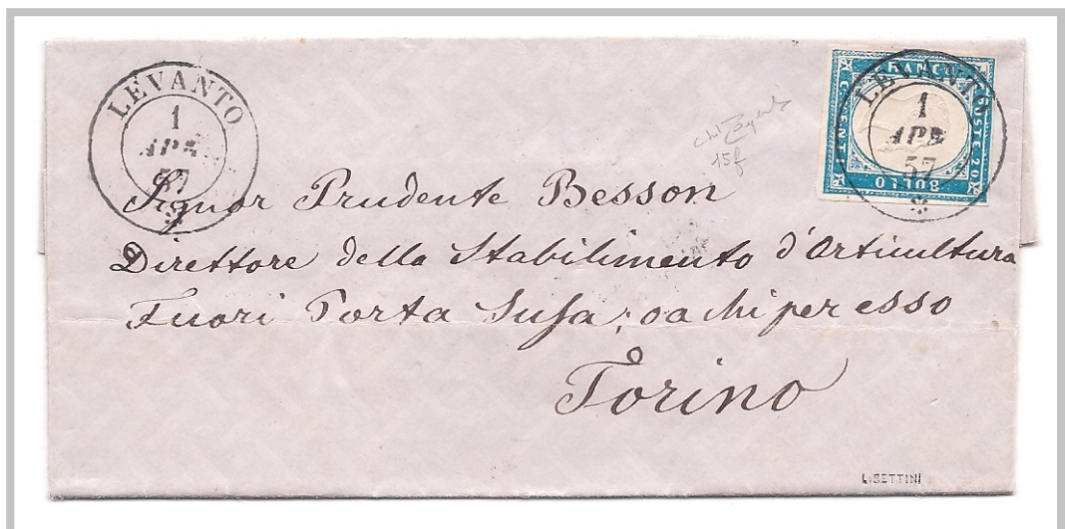 LEVANTO
1
APR
57
FRANCO
POSTE 20
BOLLO
CENT
LEVANTO
1
APR
57
15f
Signor Prudente Besson
Direttore dello Stabilimento d'Orticultura
Fuori Porta Susa; o a chi per esso
Torino
L. SETTINI